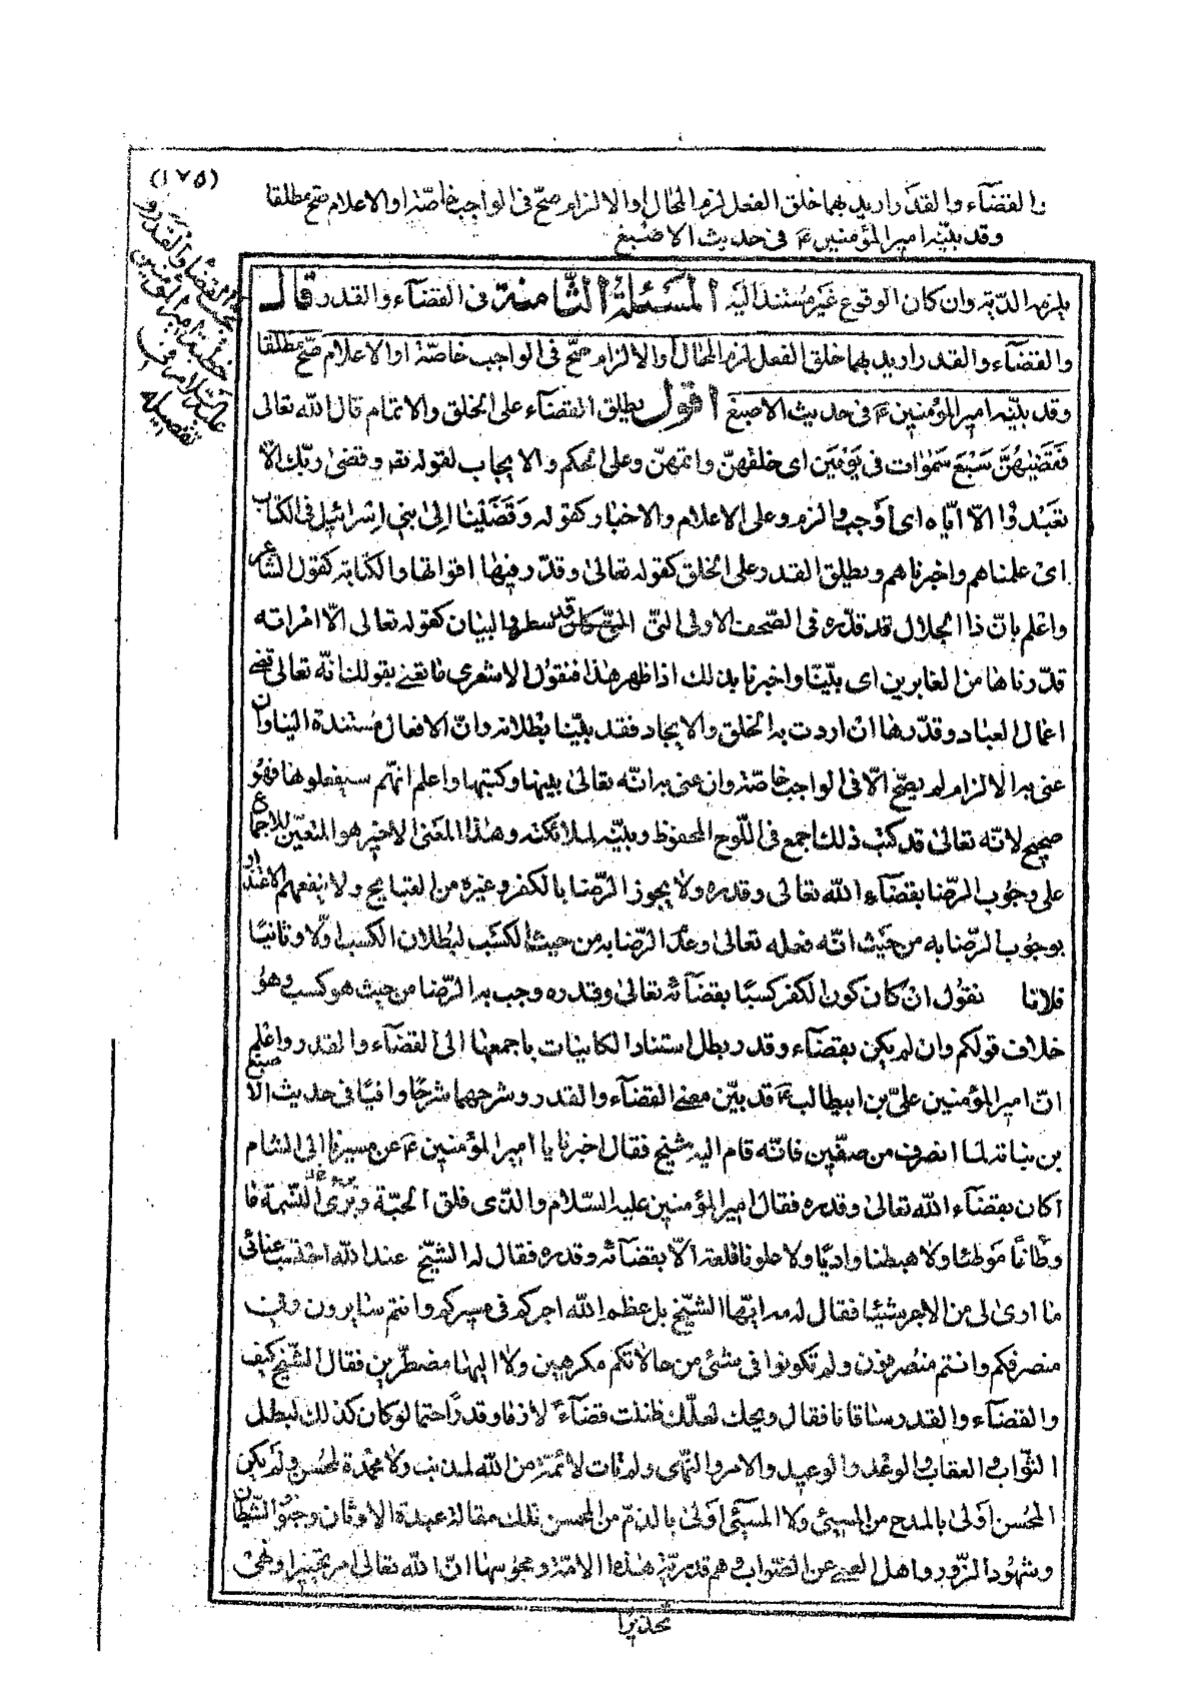 (١٧٥)
والقضآء والقدر اريد بهما خلق الفعل لزم المحال او الالزام صحّ فى الواجب خاصّة او الاعلام صحّ مطلقا
وقد بيّنه امير المؤمنين ع فى حديث الاصبغ
بحث القضاء والقدر و
خطبة امير المؤمنين
عليه السلام فى
تفصيله
يلزمه الدّية وان كان الوقوع غير مستند اليه المسئلة الثّامنة فى القضآء والقدر قال
والقضآء والقدر اريد بهما خلق الفعل لزم المحال او الالزام صحّ فى الواجب خاصّة او الاعلام صحّ مطلقا
وقد بيّنه امير المؤمنين ع فى حديث الاصبغ اقول يطلق القضآء على الخلق والاتمام قال الله تعالى
فقضيهنّ سبع سموات فى يومين اى خلقهنّ واتمهنّ وعلى الحكم والايجاب لقوله تعه وقضى ربّك الّا
تعبدوا الّا ايّاه اى اوجب والزم وعلى الاعلام والاخبار كقوله وقضينا الى بنى اسرائيل فى الكتاب
اى علمناهم واخبرناهم ويطلق القدر على الخلق كقوله تعالى وقدّر فيها اقواتها والكتابة كقول الشاعر
واعلم بانّ ذا الجلال قد قدّر فى الصّحف الاولى التى كان قد سطر والبيان كقوله تعالى الّا امراته
قدّرناها من الغابرين اى بيّنّا واخبرنا بذلك اذا ظهر هذا فنقول الاشعرى ما تعنى بقولك انّه تعالى قضى
اعمال العباد وقدّرها ان اردت به الخلق والايجاد فقد بيّنا بطلانه وانّ الافعال مستندة الينا وان
عنى به الالزام لم يصحّ الّا فى الواجب خاصّة وان عنى به انّه تعالى بيّنها وكتبها واعلم انّهم سيفعلونها فهو
صحيح لانّه تعالى قد كتب ذلك اجمع فى اللّوح المحفوظ وبيّنه لملائكته وهذا المعنى الاخير هو المتعيّن للاجماع
على وجوب الرّضا بقضآء الله تعالى وقدره ولا يجوز الرّضا بالكفر وغيره من القبايح ولا ينفعهم الاعتذار
بوجوب الرّضا به من حيث انّه فعله تعالى وعدم الرّضا به من حيث الكسب لبطلان الكسب اوّلا وثانيا
فلانا نقول ان كان كون الكفر كسبا بقضآئه تعالى وقدره وجب به الرّضا من حيث هو كسب وهو
خلاف قولكم وان لم يكن بقضآء وقدر بطل استناد الكاينات باجمعها الى القضآء والقدر واعلم
انّ امير المؤمنين علىّ بن ابيطالب ع قد بيّن معنى القضآء والقدر وشرحهما شرحا وافيا فى حديث الاصبغ
بن نباتة لما انصرف من صفّين فانّه قام اليه شيخ فقال اخبرنا يا امير المؤمنين ع عن مسيرنا الى الشام
اكان بقضآء الله تعالى وقدره فقال امير المؤمنين عليه السّلام والذّى فلق الحبّة وبرئ النّسمة ما
وطأنا موطئا ولا هبطنا واديا ولا علونا قلعة الّا بقضآئه وقدره فقال له الشّيخ عند الله احتسب عنائى
ما ارى لى من الاجر شيئا فقال له مه ايّها الشّيخ بل عظم الله اجركم فى مسيركم وانتم سايرون وفى
منصرفكم وانتم منصرفون ولم تكونوا فى شئ من حالاتكم مكرهين ولا اليها مضطرّين فقال الشّيخ كيف
والقضآء والقدر ساقانا فقال ويحك لعلّك ظننت قضآء لازما وقدرا حتما لو كان كذلك لبطل
الثّواب والعقاب والوعد والوعيد والامر والنّهى ولم تات لائمة من الله لمذنب ولا محمدة لمحسن ولم يكن
المحسن اولى بالمدح من المسيئ ولا المسيئ اولى بالذمّ من المحسن تلك مقالة عبدة الاوثان وجنود الشّيطان
وشهود الزّور واهل العمى عن الصّواب وهم قدريّة هذه الامّة ومجوسها انّ الله تعالى امر تخييرا ونهى
تحذيرا